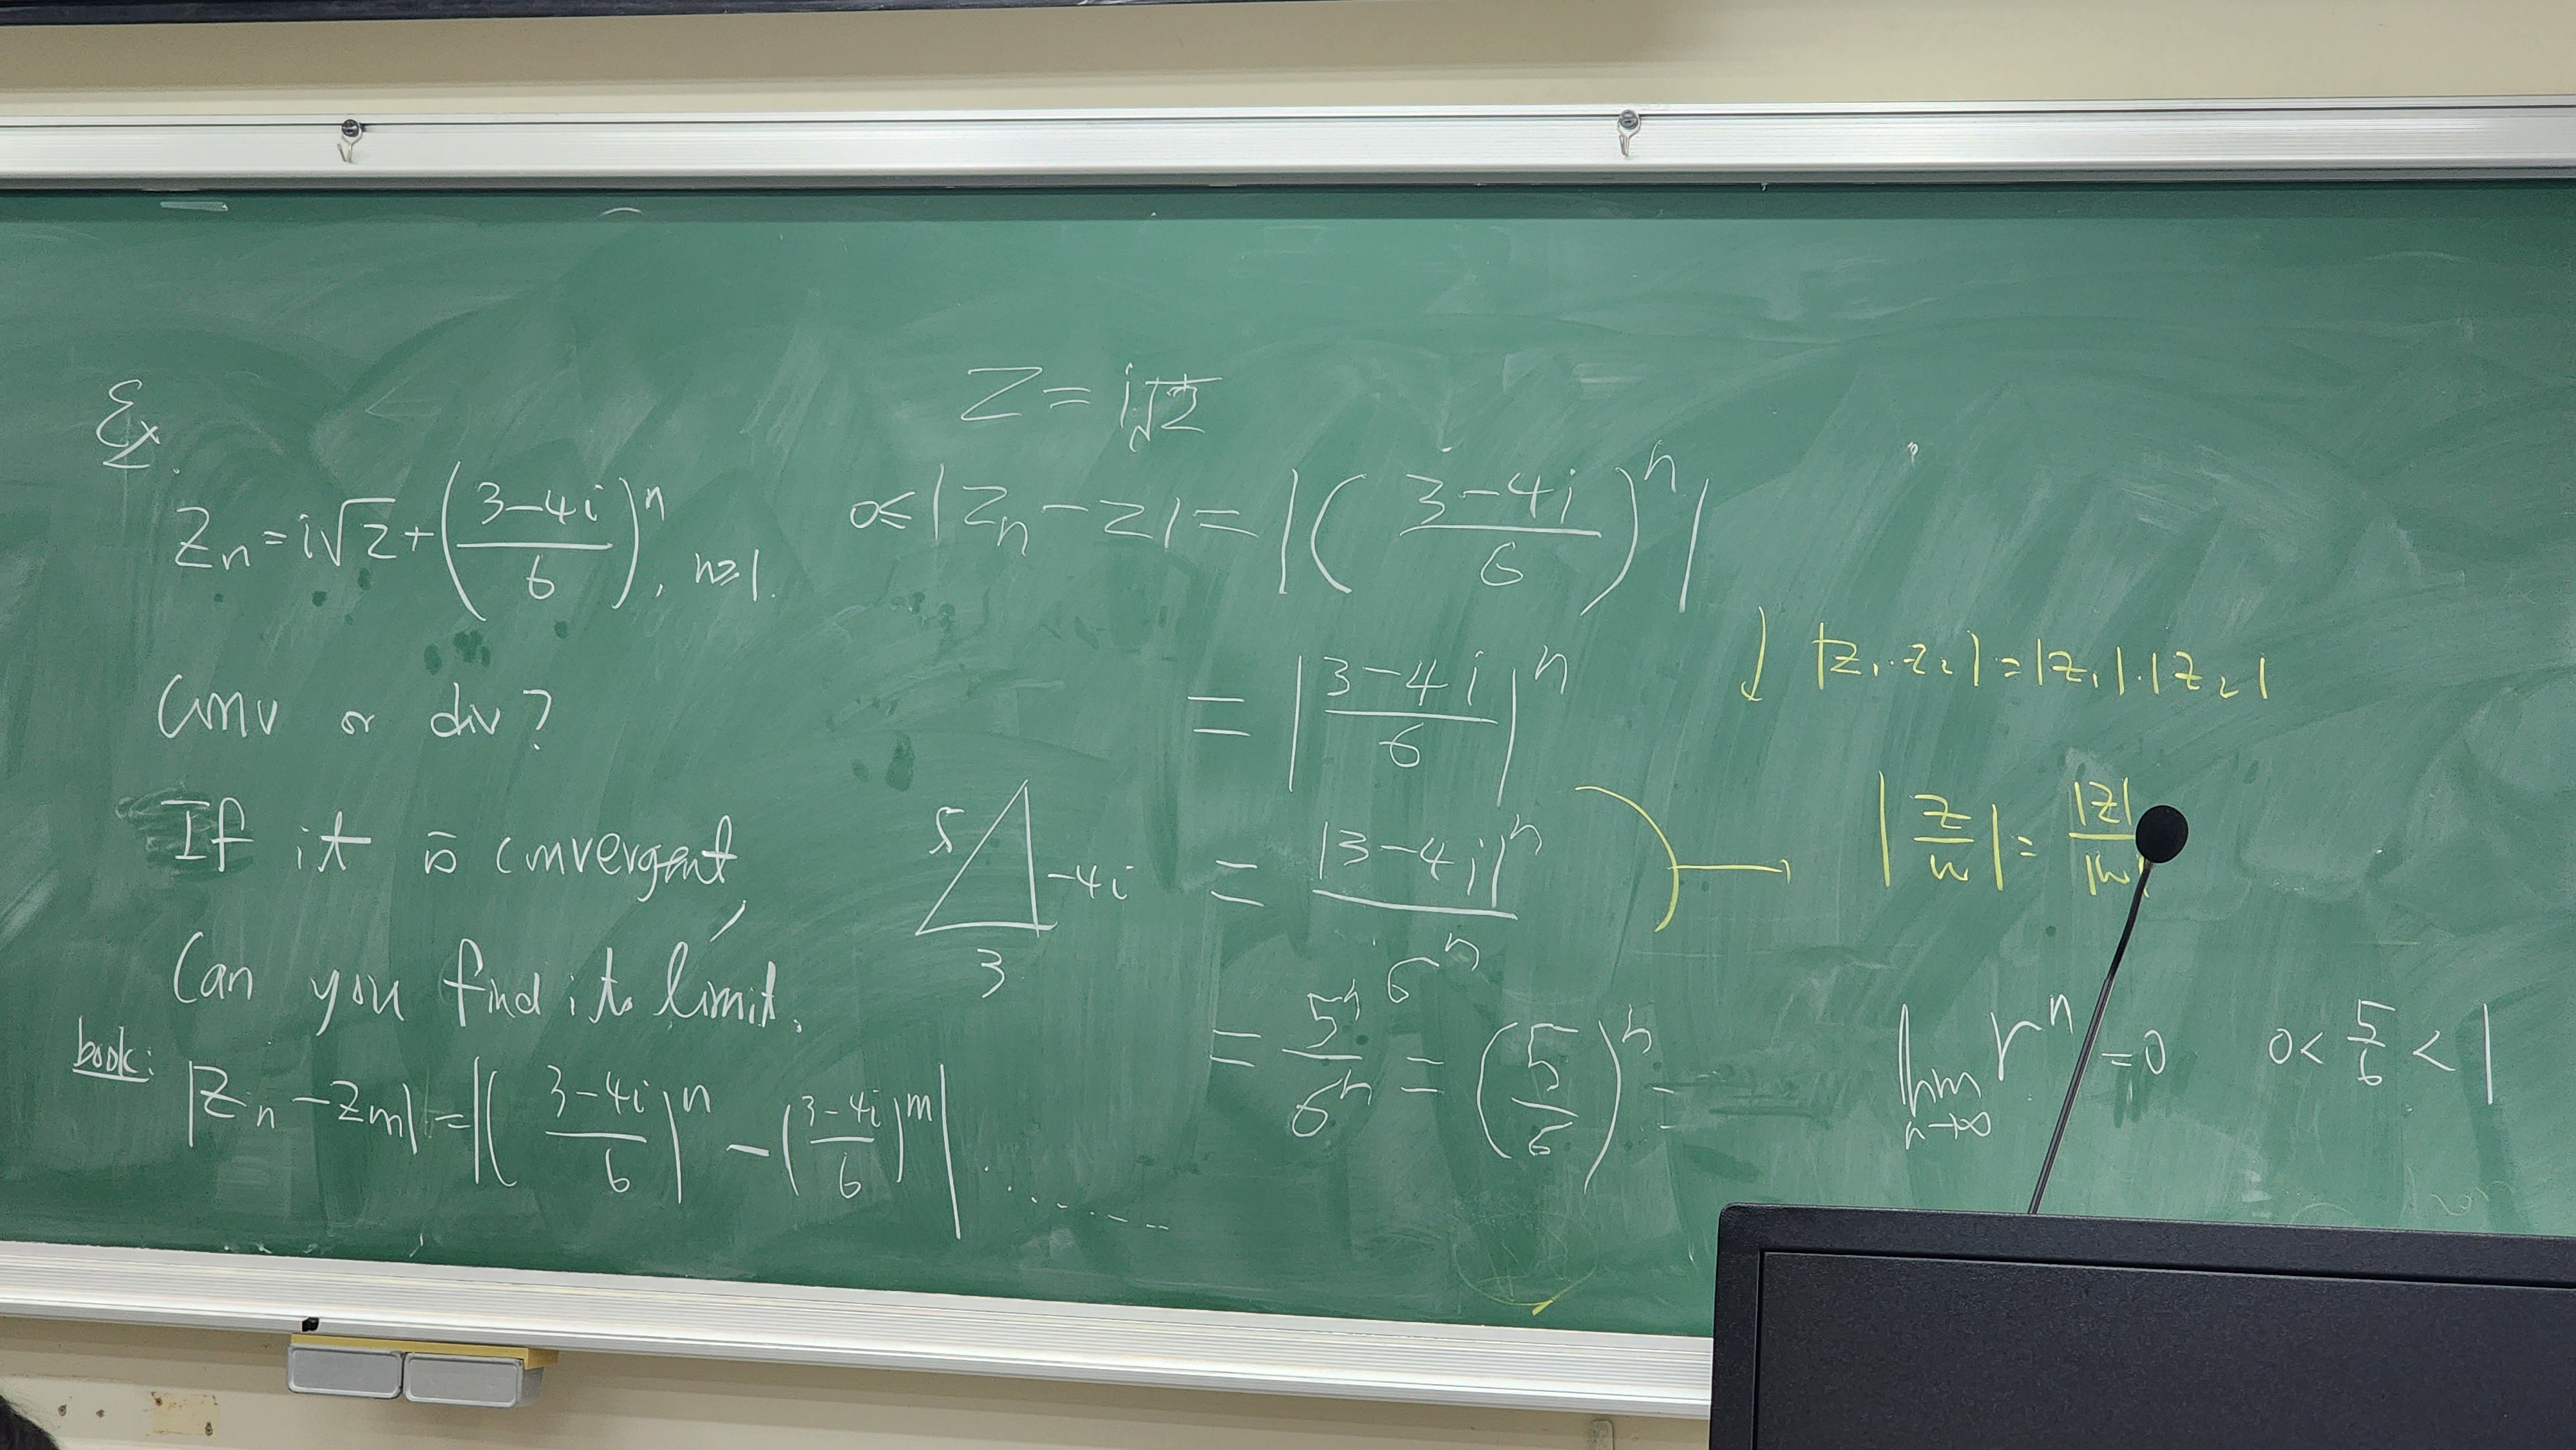 Ex.
Zn = i√2 + ((3-4i)/6)^n, n≥1.
Conv or div?
If it is convergent,
Can you find its limit.
book: |Zn - Zm| = |((3-4i)/6)^n - ((3-4i)/6)^m| ......
Z = i√2
0≤|Zn - Z| = |((3-4i)/6)^n|
= |(3-4i)/6|^n
= |3-4i|^n / 6^n
= 5^n / 6^n = (5/6)^n =
5 -4i
3
↓ |Z1·Z2| = |Z1|·|Z2|
|Z/w| = |Z|/|w|
lim n→∞ r^n = 0 0 < 5/6 < 1